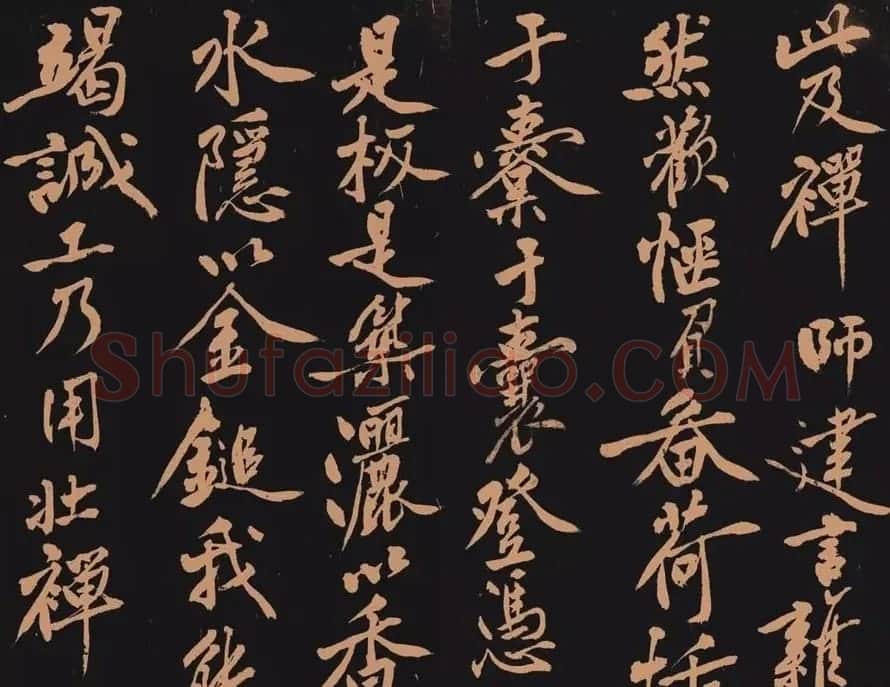 此及禪師建言雜
然歡愜負畚荷
于橐于囊登馮
是板是築灑以香
水隱以金鎚我能
竭誠工乃用壯禪
Shufaziliao.COM